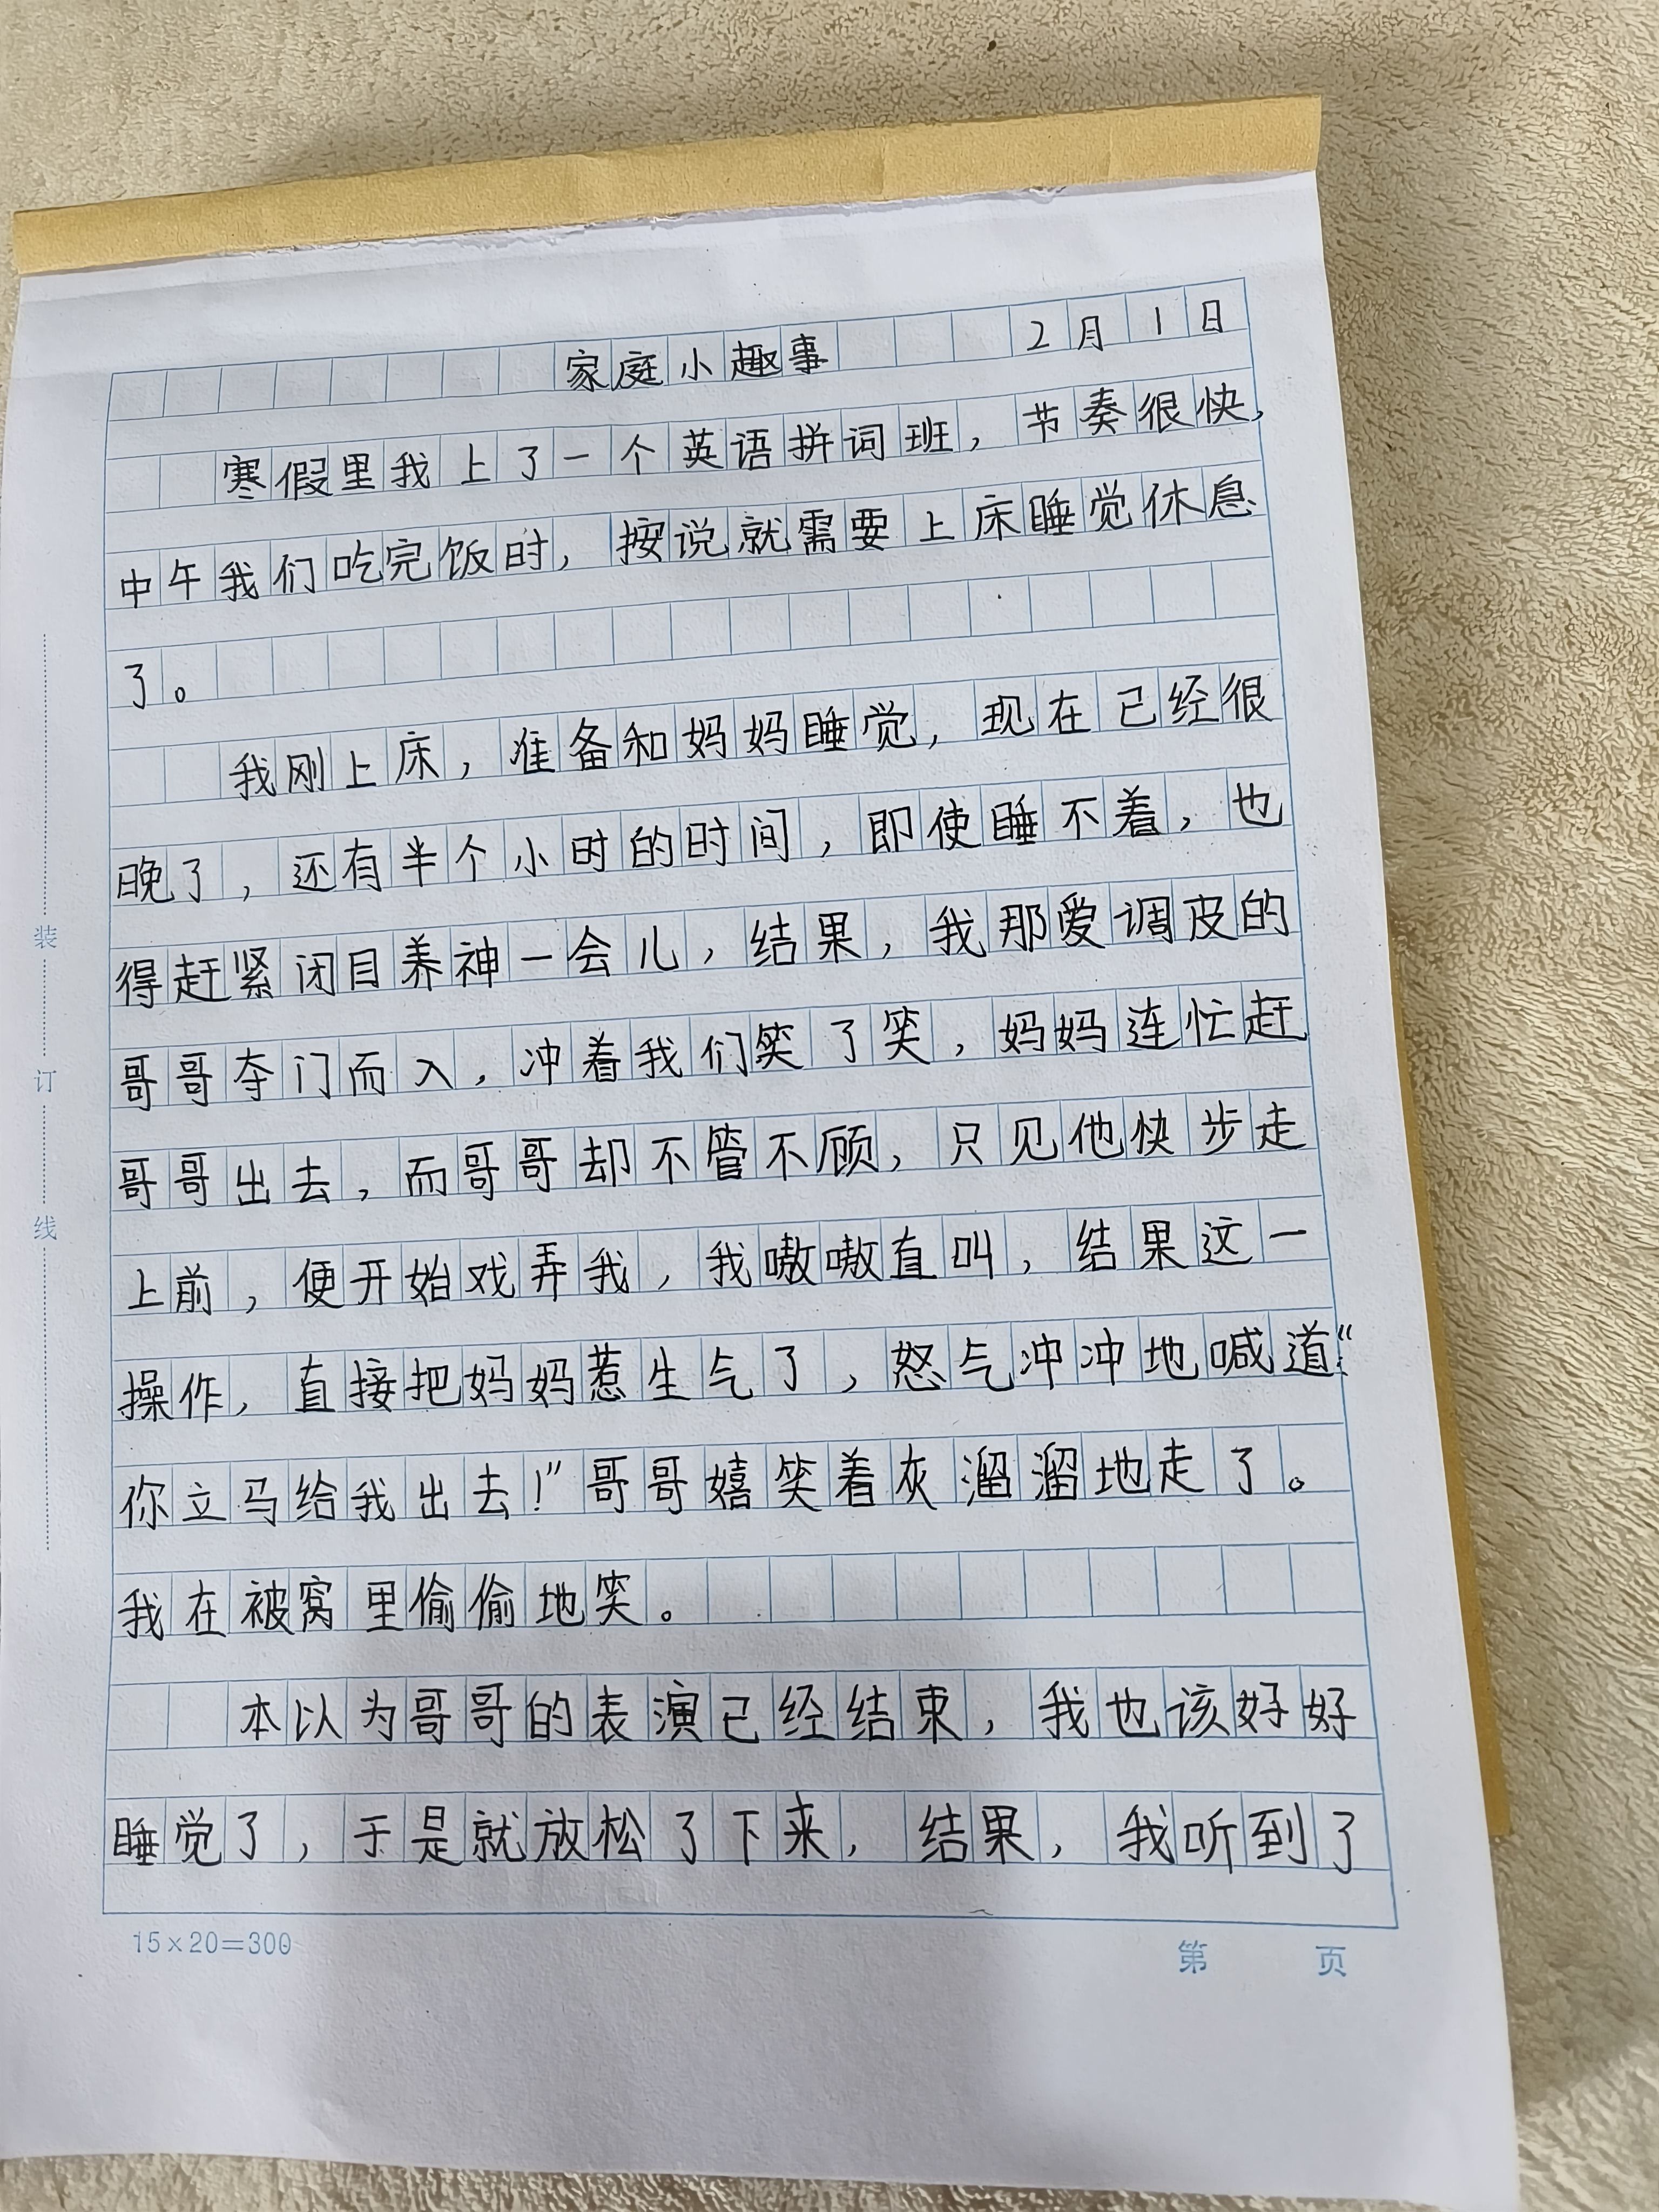 家庭小趣事 2月1日
寒假里我上了一个英语拼词班，节奏很快，
中午我们吃完饭时，按说就需要上床睡觉休息
了。
我刚上床，准备和妈妈睡觉，现在已经很
晚了，还有半个小时的时间，即使睡不着，也
得赶紧闭目养神一会儿，结果，我那爱调皮的
哥哥夺门而入，冲着我们笑了笑，妈妈连忙赶
哥哥出去，而哥哥却不管不顾，只见他快步走
上前，便开始戏弄我，我嗷嗷直叫，结果这一
操作，直接把妈妈惹生气了，怒气冲冲地喊道：“
你立马给我出去！”哥哥嬉笑着灰溜溜地走了。
我在被窝里偷偷地笑。
本以为哥哥的表演已经结束，我也该好好
睡觉了，于是就放松了下来，结果，我听到了
15×20=300 第 页
装
订
线